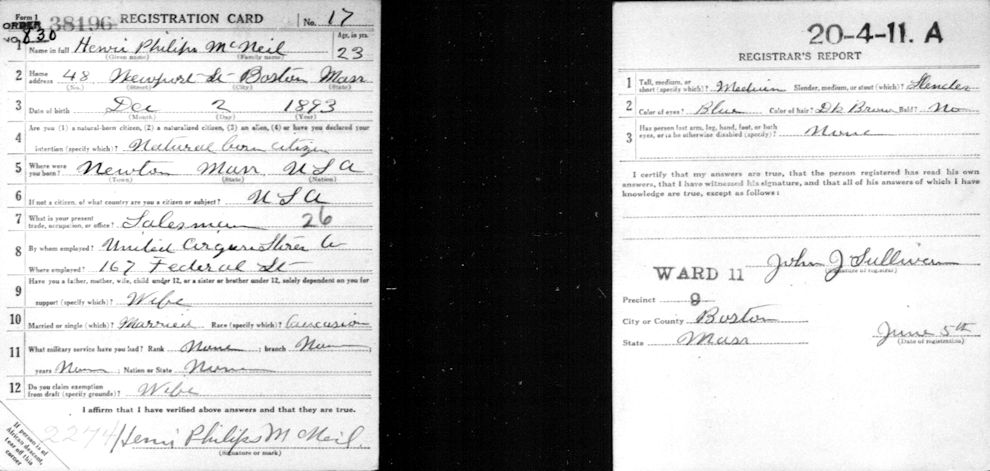 Form 1 38196 REGISTRATION CARD No. 17
ORDER NO 830
1 Name in full Henri Philips McNeil Age, in yrs. 23
(Given name) (Family name)
2 Home address 48 Newport St Boston Mass
(No.) (Street) (City) (State)
3 Date of birth Dec 2 1893
(Month) (Day) (Year)
4 Are you (1) a natural-born citizen, (2) a naturalized citizen, (3) an alien, (4) or have you declared your
intention (specify which)? Natural born citizen
5 Where were you born? Newton Mass U S A
(Town) (State) (Nation)
6 If not a citizen, of what country are you a citizen or subject? U S A
7 What is your present trade, occupation, or office? Salesman 26
8 By whom employed? United Cigar Stores Co
Where employed? 167 Federal St
9 Have you a father, mother, wife, child under 12, or a sister or brother under 12, solely dependent on you for
support (specify which)? Wife
10 Married or single (which)? Married Race (specify which)? Caucasion
11 What military service have you had? Rank None ; branch None ;
years None ; Nation or State None
12 Do you claim exemption from draft (specify grounds)? Wife
I affirm that I have verified above answers and that they are true.
2274 Henri Philips McNeil
(Signature or mark)
If person is of
African descent,
tear off this
corner
20-4-11. A
REGISTRAR'S REPORT
1 Tall, medium, or short (specify which)? Medium Slender, medium, or stout (which)? Slender
2 Color of eyes? Blue Color of hair? Dk Brown Bald? No
3 Has person lost arm, leg, hand, foot, or both
eyes, or is he otherwise disabled (specify)? None
I certify that my answers are true, that the person registered has read his own
answers, that I have witnessed his signature, and that all of his answers of which I have
knowledge are true, except as follows:
John J Sullivan
(Signature of registrar)
WARD 11
Precinct 9
City or County Boston
State Mass
June 5th
(Date of registration)